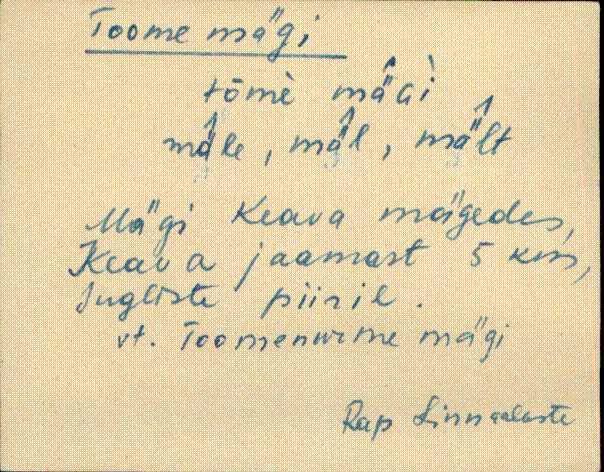 Toome mägi
tōmè mä̂Gì
mä̀le, mä̀l, mä̀lt
Mägi Keava mägedes,
Keava jaamast 5 km,
Ingliste piiril.
vt. Toomenurme mägi
Rap Linnaaluste